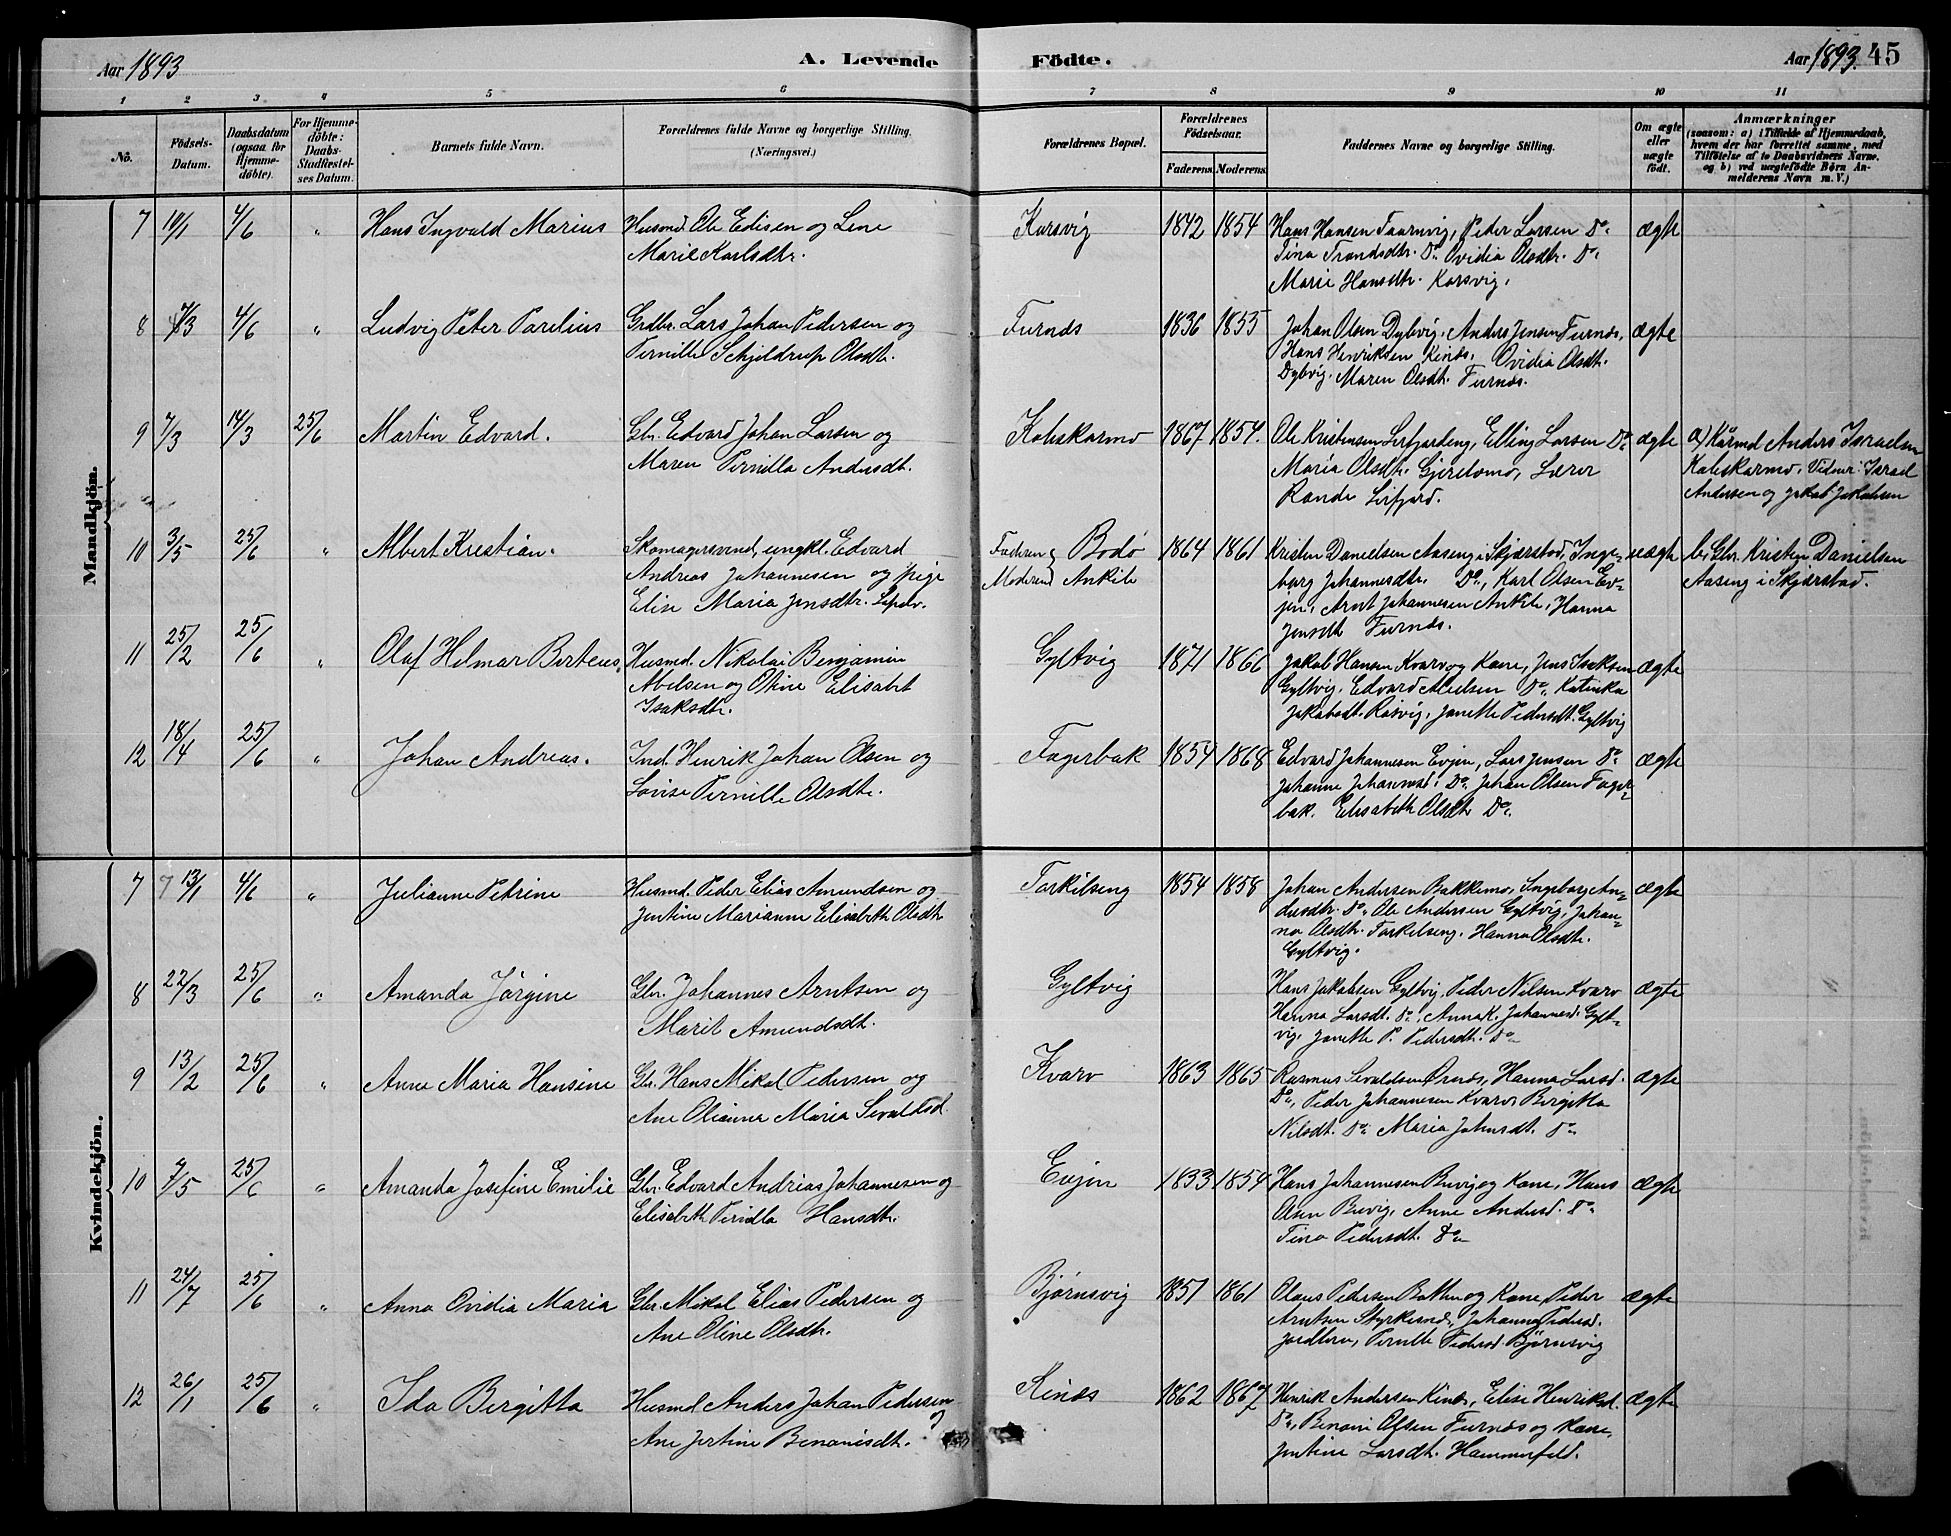 Aar 1893
A. Levende Födte.
Aar 1893.
45
1 2 3 4 5 6 7 8 9 10 11
No.
Födsels-Datum.
Daabsdatum (ogsaa for Hjemme-döbte).
For Hjemme-döbte: Daabs-Stadfæstel-ses Datum.
Barnets fulde Navn.
Forældrenes fulde Navne og borgerlige Stilling.
(Næringsvei.)
Forældrenes Bopæl.
Forældrenes Födselsaar.
Faderens Moderens
Faddernes Navne og borgerlige Stilling.
Om ægte eller uægte födt.
Anmærkninger
(saasom: a) i Tilfælde af Hjemmedaab,
hvem der har forrettet samme, med
Tilföielse af to Daabsvidners Navne.
og b) ved uægtefödte Börn An-
melderens Navn m. V.)
Mandkjön.
7 10/1 4/6 " Hans Ingvald Marius
Husmd. Ole Edisen og Lene
Marie Karlsdtr.
Korsvig 1842 1854
Hans Hansen Taarnvig, Peder Larsen Do.
Tina Trondsdtr. Do. Ovidia Olsdtr. Do.
Marie Hansdtr. Korsvig.
ægte
8 7/3 4/6 " Ludvig Peter Parelius
Grdbr. Lars Johan Pedersen og
Pernille Schjeldrup Olsdtr.
Furnæs 1836 1855
Johan Olsen Dybvig. Anders Jensen Furnæs,
Hans Henriksen Kinæs. Ovidia Olsdtr.
Dybvig. Maren Olsdtr. Furnæs.
ægte
9 7/3 14/3 25/6 Martin Edvard.
Gbr. Edvard Johan Larsen og
Maren Pernilla Andersdtr.
Kobskarmo 1867 1854.
Ole Kristensen Lerfjordeng, Elling Larsen Do.
Maria Olsdtr. Gjerelomo, Lærer
Rande Leifjord.
ægte
a) Kårmd Anders Israelsen
Kobskarmo. Vidner: Israel
Andersen og Jakob Jakobsen
10 3/5 25/6 " Albert Kristian.
Skomagersvend, ungkl. Edvard
Andreas Johannesen og pige
Elise Maria Jensdtr.
Faderen Bodö
Moderen Ankile
1864 1861
Kristen Danielsen Aaseng i Skjærstad, Inge-
borg Johannesdtr. Do., Karl Olsen Ev-
jen, Arnt Johannesen Ankile, Hanna
Jensdtr Furnæs.
uægte
b, Gbr. Kristen Danielsen
Aaseng i Skjærstad.
11 25/2 25/6 " Olaf Hilmar Berteus,
Husmd. Nikolai Benjamin
Abelsen og Oline Elisabet
Isaksdtr.
Gyltvig 1871 1866
Jakob Hansen Kvarv og Kone, Jens Isaksen
Gyltvig. Edvard Nielsen Do. Katinka
Jakobsdt. Røsvig, Janette Pedersdt. Gyltvig
ægte
12 18/4 25/6 " Johan Andreas.
Ind. Henrik Johan Olsen og
Lovise Pernille Olsdtr.
Fagerbak 1854 1868
Edvard Johannesen Evjen, Lars Jensen Do
Johanne Johannesd. Do. Johan Olsen Fager-
bak. Elisabeth Olsdtr Do.
ægte
Kvindekjön.
7 13/1 4/6 " Julianne Petrine
Husmd. Peder Elias Amundsen og
Jentine Marianne Elisabeth Olsdtr
Torkilseng 1854 1858
Johan Andersen Bakkemo, Ingeborg An-
dersdtr. Do., Ole Andersen Gyltvig, Johan-
na Olsdtr. Torkilseng. Hanna Olsdtr.
Gyltvig.
ægte
8 22/3 25/6 " Amanda Jörgine
Gbr. Johannes Arntsen og
Marit Amundsdt.
Gyltvig
Hans Jakobsen Gyltvig, Peder Nilsen Kvarv
Hanna Larsdt. Do., Anna K. Johannesd. Gylt-
vig. Janette P. Pedersdt. Do
ægte
9 13/2 25/6 " Anne Maria Hansine
Gbr. Hans Mikal Pedersen og
Ane Olianna Maria Sevaldsd.
Kvarv 1863 1865
Rasmus Sevaldsen Ørnæs, Hanna Larsd.
Do., Peder Johannesen Kvarv Birgitta
Nilsdt. Do Maria Johnsdt. Do
ægte
10 9/5 25/6 " Amanda Josefine Emilie
Gbr. Edvard Andreas Johannesen og
Elisabeth Pernilla Hansdtr.
Evjen 1833 1854
Hans Johannesen Buvig og Kone, Hans
Olsen Buvig, Anne Andersd. Do
Tina Pedersdt. Do
ægte
11 24/7 25/6 " Anna Ovidia Maria
Gbr. Mikal Elias Pedersen og
Ane Oline Olsdtr.
Bjørnsvig 1851 1861
Olaus Pedersen Botten og Kone, Peder
Arntsen Styrkesnes, Johanna Pedersd.
Jordbru, Pernille Pedersd. Bjørnsvig
ægte
12 26/1 25/6 " Ida Birgitta
Husmd Anders Johan Pedersen
og
Ane Jertine Benonisdt.
Kinæs 1862 1867
Henrik Andersen Kinæs, Elise Henriksd.
Do., Benoni Olsen Furnæs og Kone,
Jentine Larsdtr. Hammerfeld.
ægte